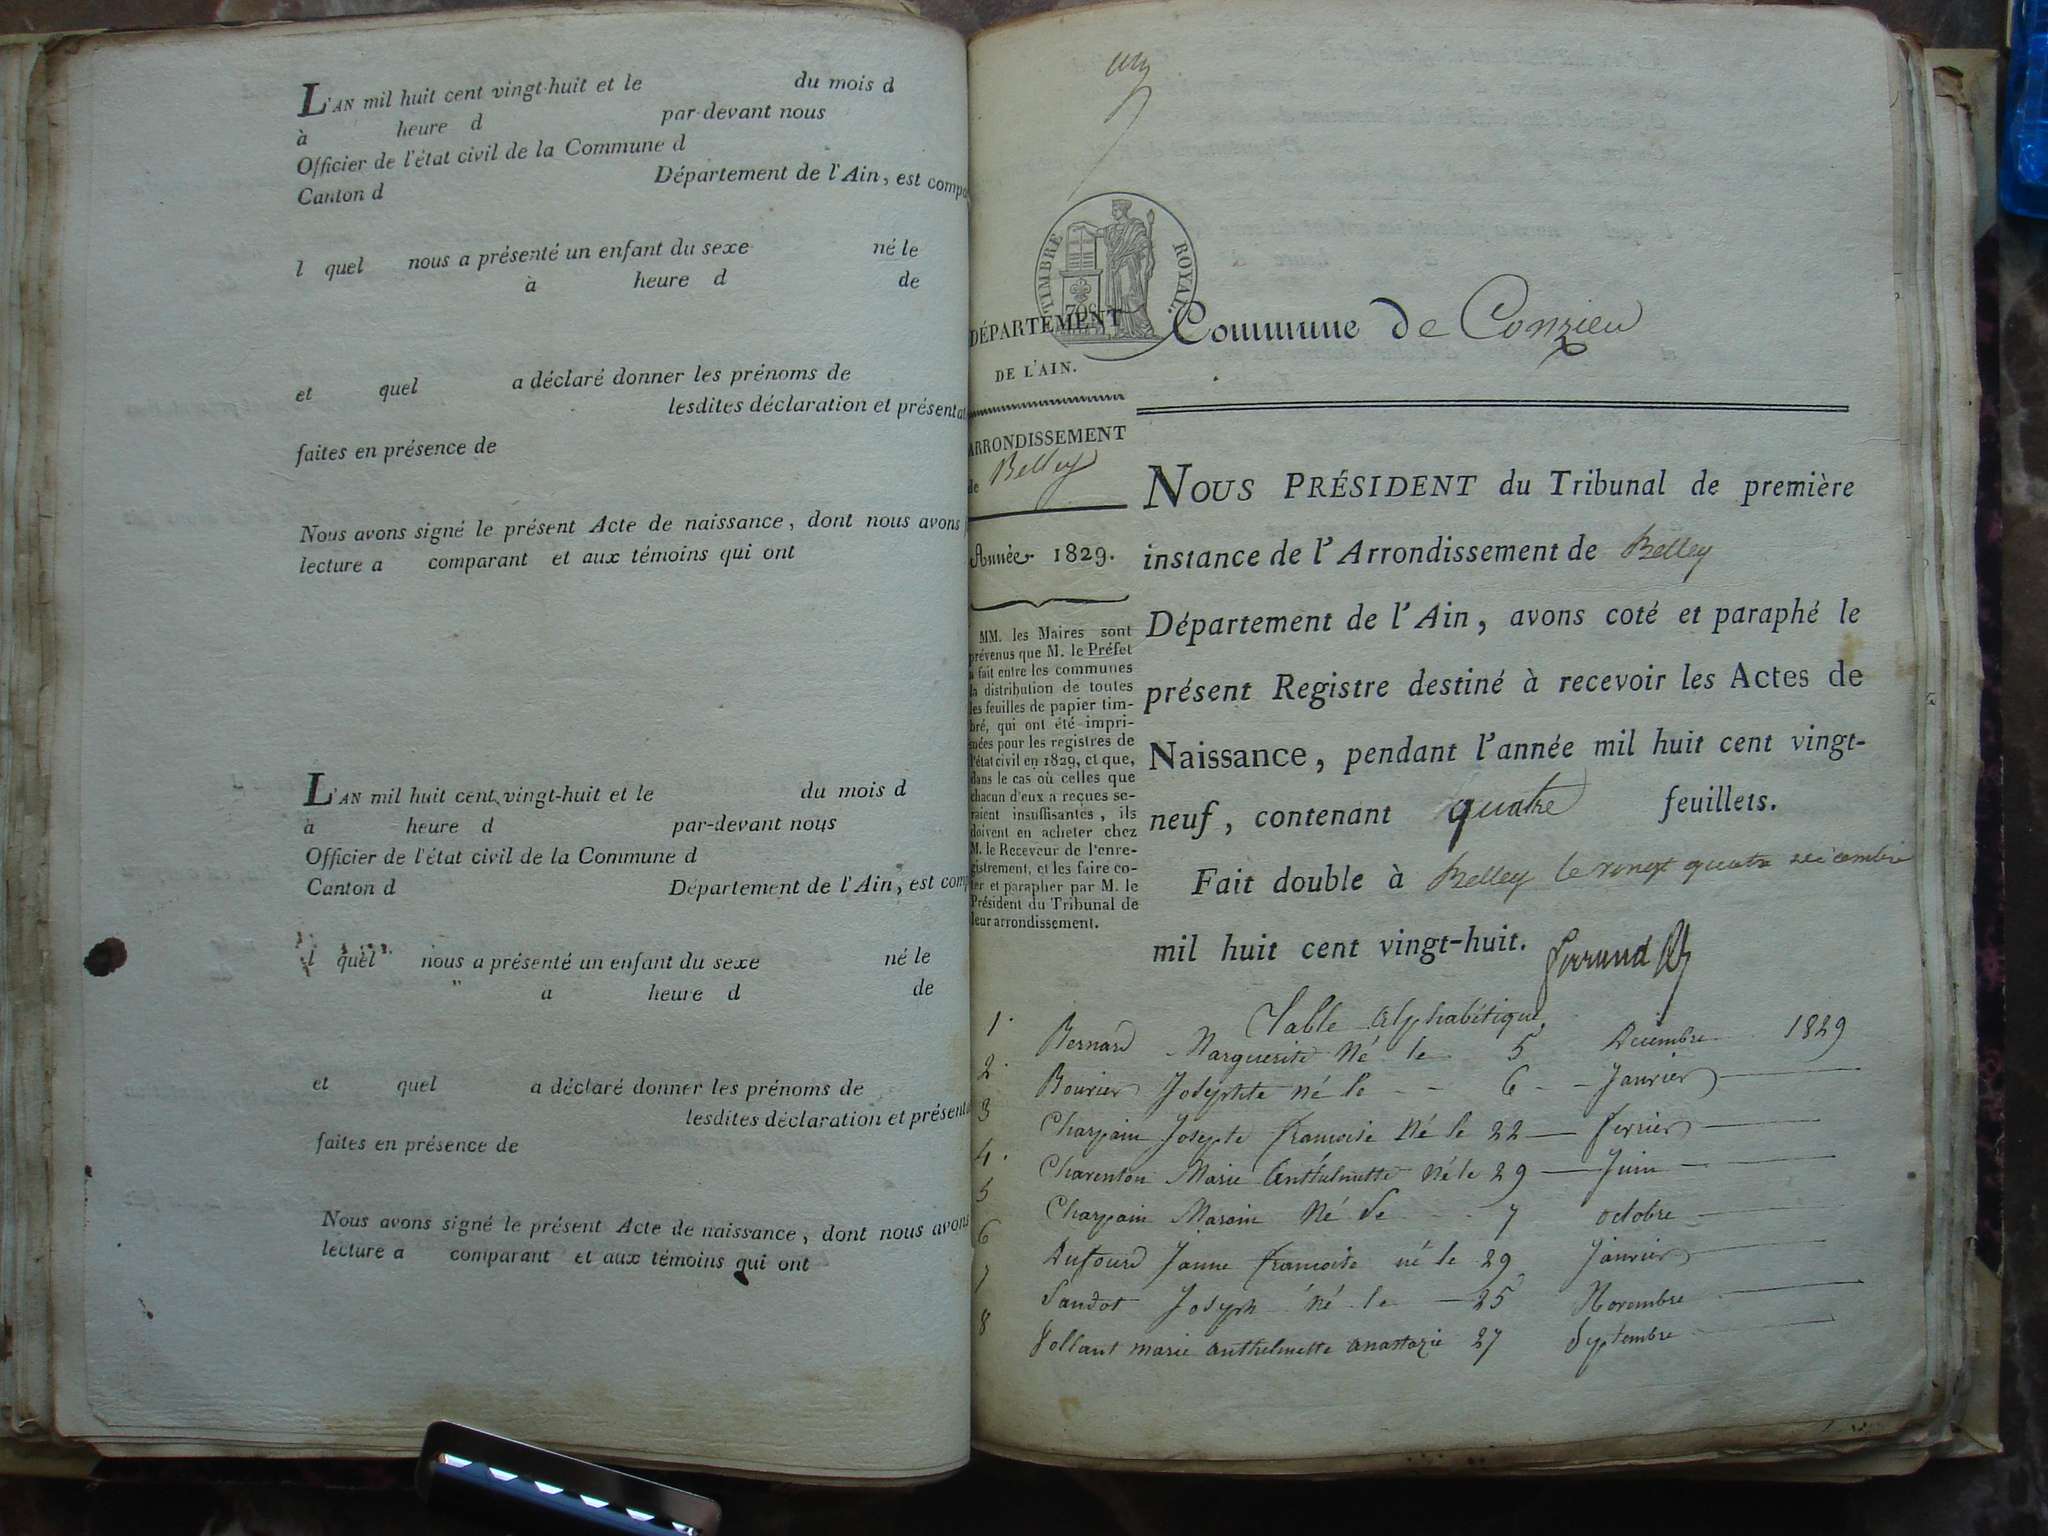 L'AN mil huit cent vingt-huit et le du mois d
à heure d par-devant nous
Officier de l'état civil de la Commune d
Canton d Département de l'Ain, est compa
l quel nous a présenté un enfant du sexe né le
à heure d de
et quel a déclaré donner les prénoms de
lesdites déclaration et présentat
faites en présence de
Nous avons signé le présent Acte de naissance, dont nous avons
lecture a comparant et aux témoins qui ont
L'AN mil huit cent vingt-huit et le du mois d
à heure d par-devant nous
Officier de l'état civil de la Commune d
Canton d Département de l'Ain, est comp
l quel nous a présenté un enfant du sexe né le
à heure d de
et quel a déclaré donner les prénoms de
lesdites déclaration et présenta
faites en présence de
Nous avons signé le présent Acte de naissance, dont nous avons
lecture a comparant et aux témoins qui ont
TIMBRE ROYAL.
DÉPARTEMENT
DE L'AIN.
ARRONDISSEMENT
de Belley
Année 1829.
MM. les Maires sont
prévenus que M. le Préfet
a fait entre les communes
la distribution de toutes
les feuilles de papier tim-
bré, qui ont été impri-
mées pour les registres de
l'état civil en 1829, et que,
dans le cas où celles que
chacun d'eux a reçues se-
raient insuffisantes, ils
doivent en acheter chez
M. le Receveur de l'enre-
gistrement, et les faire co-
ter et parapher par M. le
Président du Tribunal de
leur arrondissement.
Commune de Conzieu
NOUS PRÉSIDENT du Tribunal de première
instance de l'Arrondissement de Belley
Département de l'Ain, avons coté et paraphé le
présent Registre destiné à recevoir les Actes de
Naissance, pendant l'année mil huit cent vingt-
neuf, contenant quatre feuillets.
Fait double à Belley le vingt quatre décembre
mil huit cent vingt-huit.
Table Alphabétique
1 Bernard Marguerite Né le 5 Décembre 1829
2 Bourier Josephte né le 6 Janvier
3 Charpin Josepte francoise Né le 22 fevrier
4 Charenton Marie Anthelmette Né le 29 Juin
5 Charpin Marain Né Le 7 octobre
6 Dufourd Janne francoise né le 29 Janvier
7 Joseph Né le 25 Novembre
8 marie anthelmette anastazie 27 Septembre